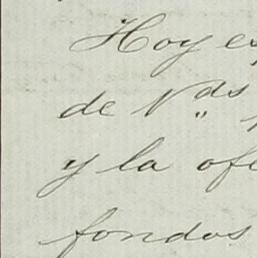 Hoy es
de V.ds
y la ofe
fondos